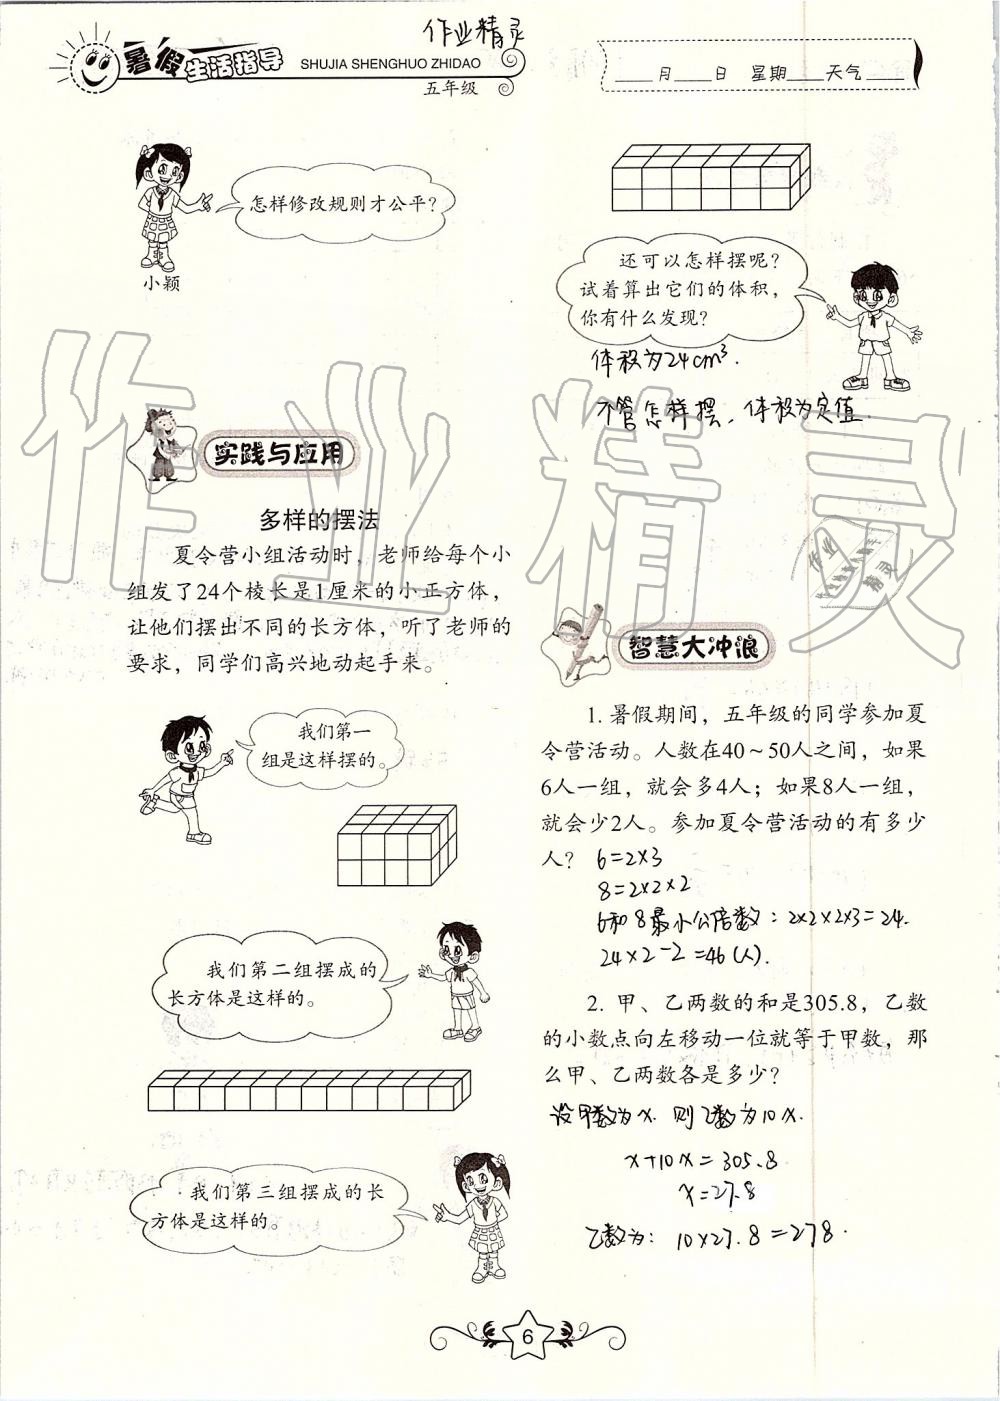 作业精灵
暑假生活指导
SHUJIA SHENGHUO ZHIDAO
五年级
____月____日 星期____天气____
怎样修改规则才公平？
小颖
实践与应用
多样的摆法
夏令营小组活动时，老师给每个小
组发了24个棱长是1厘米的小正方体，
让他们摆出不同的长方体，听了老师的
要求，同学们高兴地动起手来。
我们第一
组是这样摆的。
我们第二组摆成的
长方体是这样的。
我们第三组摆成的长
方体是这样的。
还可以怎样摆呢？
试着算出它们的体积，
你有什么发现？
体积为24cm³.
不管怎样摆，体积为定值.
作业精灵
作业精灵
智慧大冲浪
1. 暑假期间，五年级的同学参加夏
令营活动。人数在40～50人之间，如果
6人一组，就会多4人；如果8人一组，
就会少2人。参加夏令营活动的有多少
人？
6=2×3
8=2×2×2
6和8最小公倍数：2×2×2×3=24.
24×2-2=46(人).
2. 甲、乙两数的和是305.8，乙数
的小数点向左移动一位就等于甲数，那
么甲、乙两数各是多少？
设甲数为x. 则乙数为10x.
x+10x=305.8
x=27.8
乙数为：10×27.8=278.
6